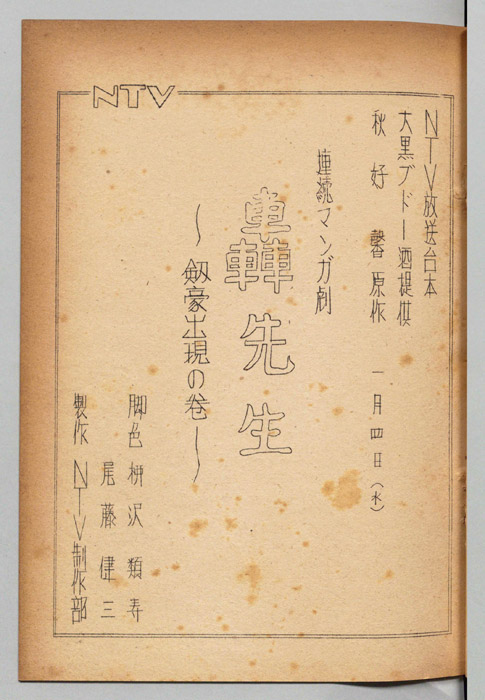 NTV
NTV放送台本
大黒ブドー酒提供
秋好 馨 原作 一月四日(水)
連続マンガ劇
轟先生
～剱豪出現の巻～
脚色 柳沢類寿
尾藤健三
製作 NTV制作部